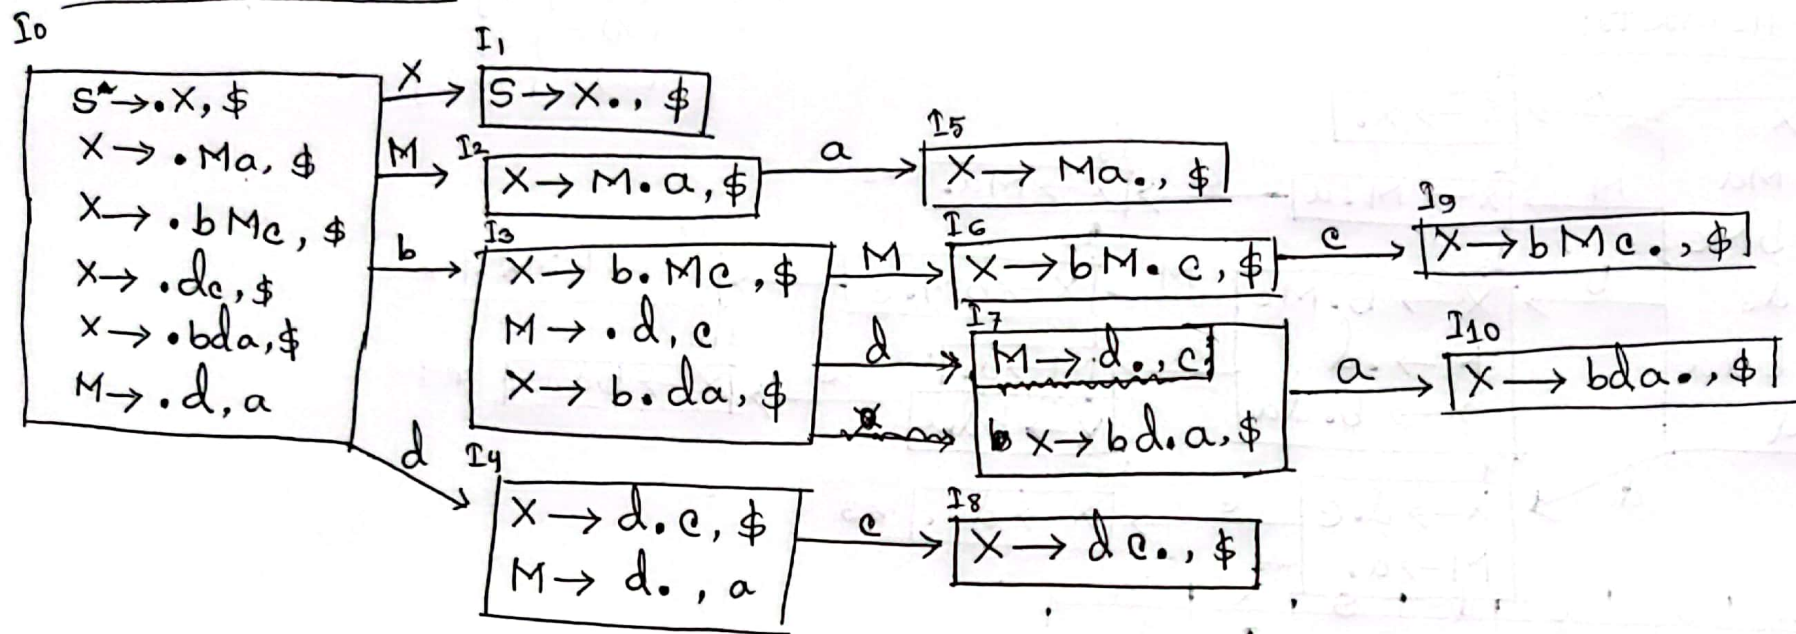 I0
S→.X, $
X→ .Ma, $
X→ .bMc, $
X→ .dc, $
X→ .bda, $
M→ .d, a
X
I1
S→X., $
M
I2
X→ M.a, $
a
I5
X→ Ma., $
b
I3
X→ b.Mc, $
M→ .d, c
X→ b.da, $
M
I6
X→bM.c, $
c
I9
X→bMc., $
d
I7
M→d., c
X→bd.a, $
a
I10
X→ bda., $
d
I4
X→ d.c, $
M→ d., a
c
I8
X→ dc., $